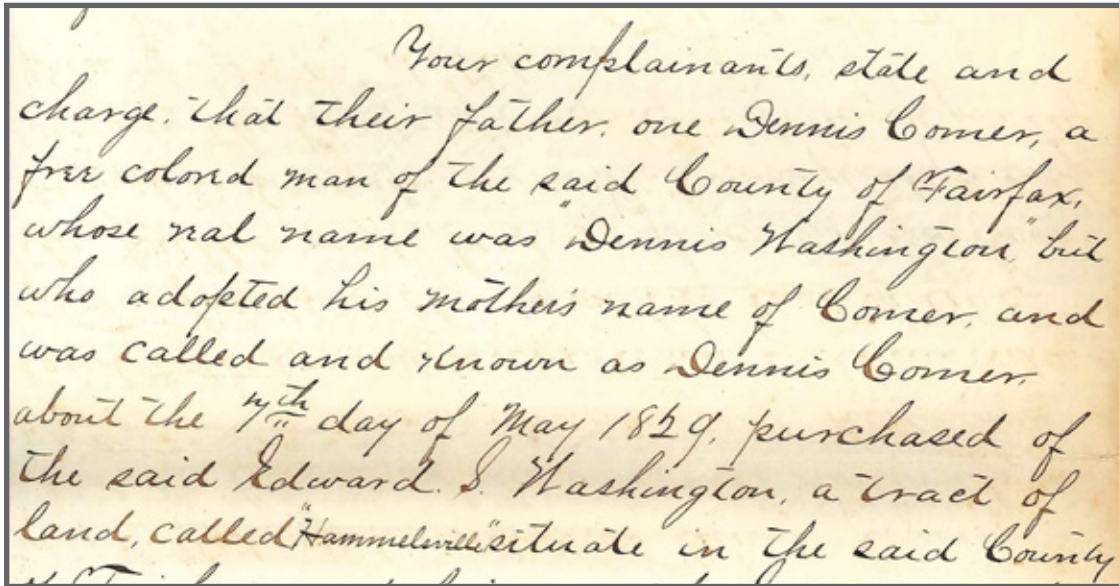 Your complainants, state and
charge, that their father, one Dennis Comer, a
free colored man of the said County of Fairfax,
whose real name was "Dennis Washington," but
who adopted his mother's name of Comer, and
was called and known as Dennis Comer,
about the 7th day of May 1829, purchased of
the said Edward. S. Washington, a tract of
land, called, "Hammelsville" situate in the said County